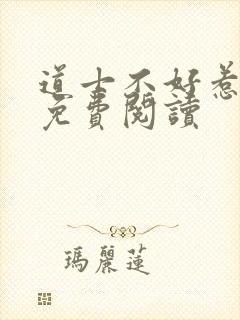 道士不好惹
免費閱讀
瑪麗蓮